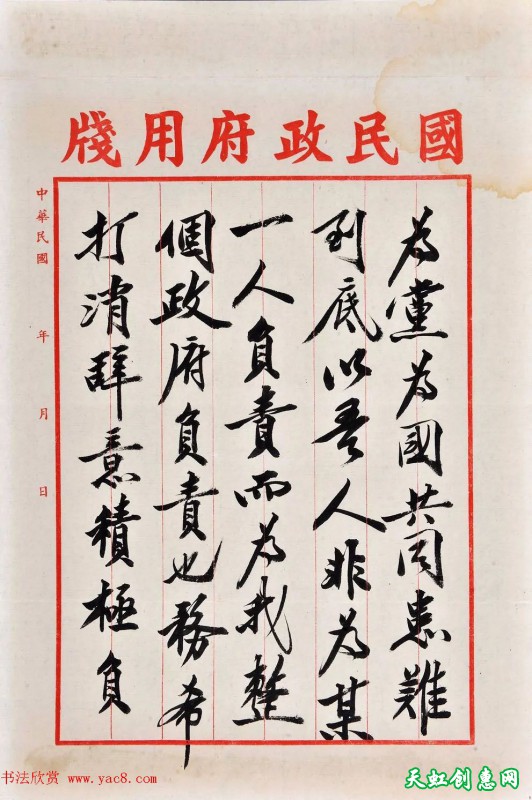 國民政府用牋
為黨為國共同患難
到底以吾人非為某
一人負責而為我整
個政府負責也務希
打消辞意積極負
中華民國 年 月 日
书法欣赏 www.yac8.com
天虹创惠网